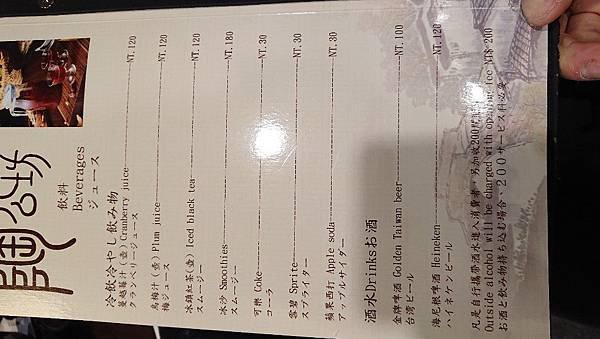 陶公坊
飲料
Beverages
ジュース
冷飲冷やし飲み物
蔓越莓汁(壺)Cranberry juice NT.120
クランベリージュース
烏梅汁(壺)Plum juice NT.120
梅ジュース
冰鎮紅茶(壺)Iced black tea NT.120
スムージー
冰沙 Smoothies NT.180
スムージー
可樂 Coke NT.30
コーラ
雪碧 Sprite NT.30
スプライター
蘋果西打 Apple soda NT.30
アップルサイダー
酒水Drinksお酒
金牌啤酒 Golden Taiwan beer NT.100
台湾ビール
海尼根啤酒 Heineken NT.120
ハイネケンビール
凡是自行攜帶酒水進入消費者,另加收200開瓶費
Outside alcohol will be charged with opening fee NT$ 200
お酒と飲み物持ち込む場合、200サービス料必要